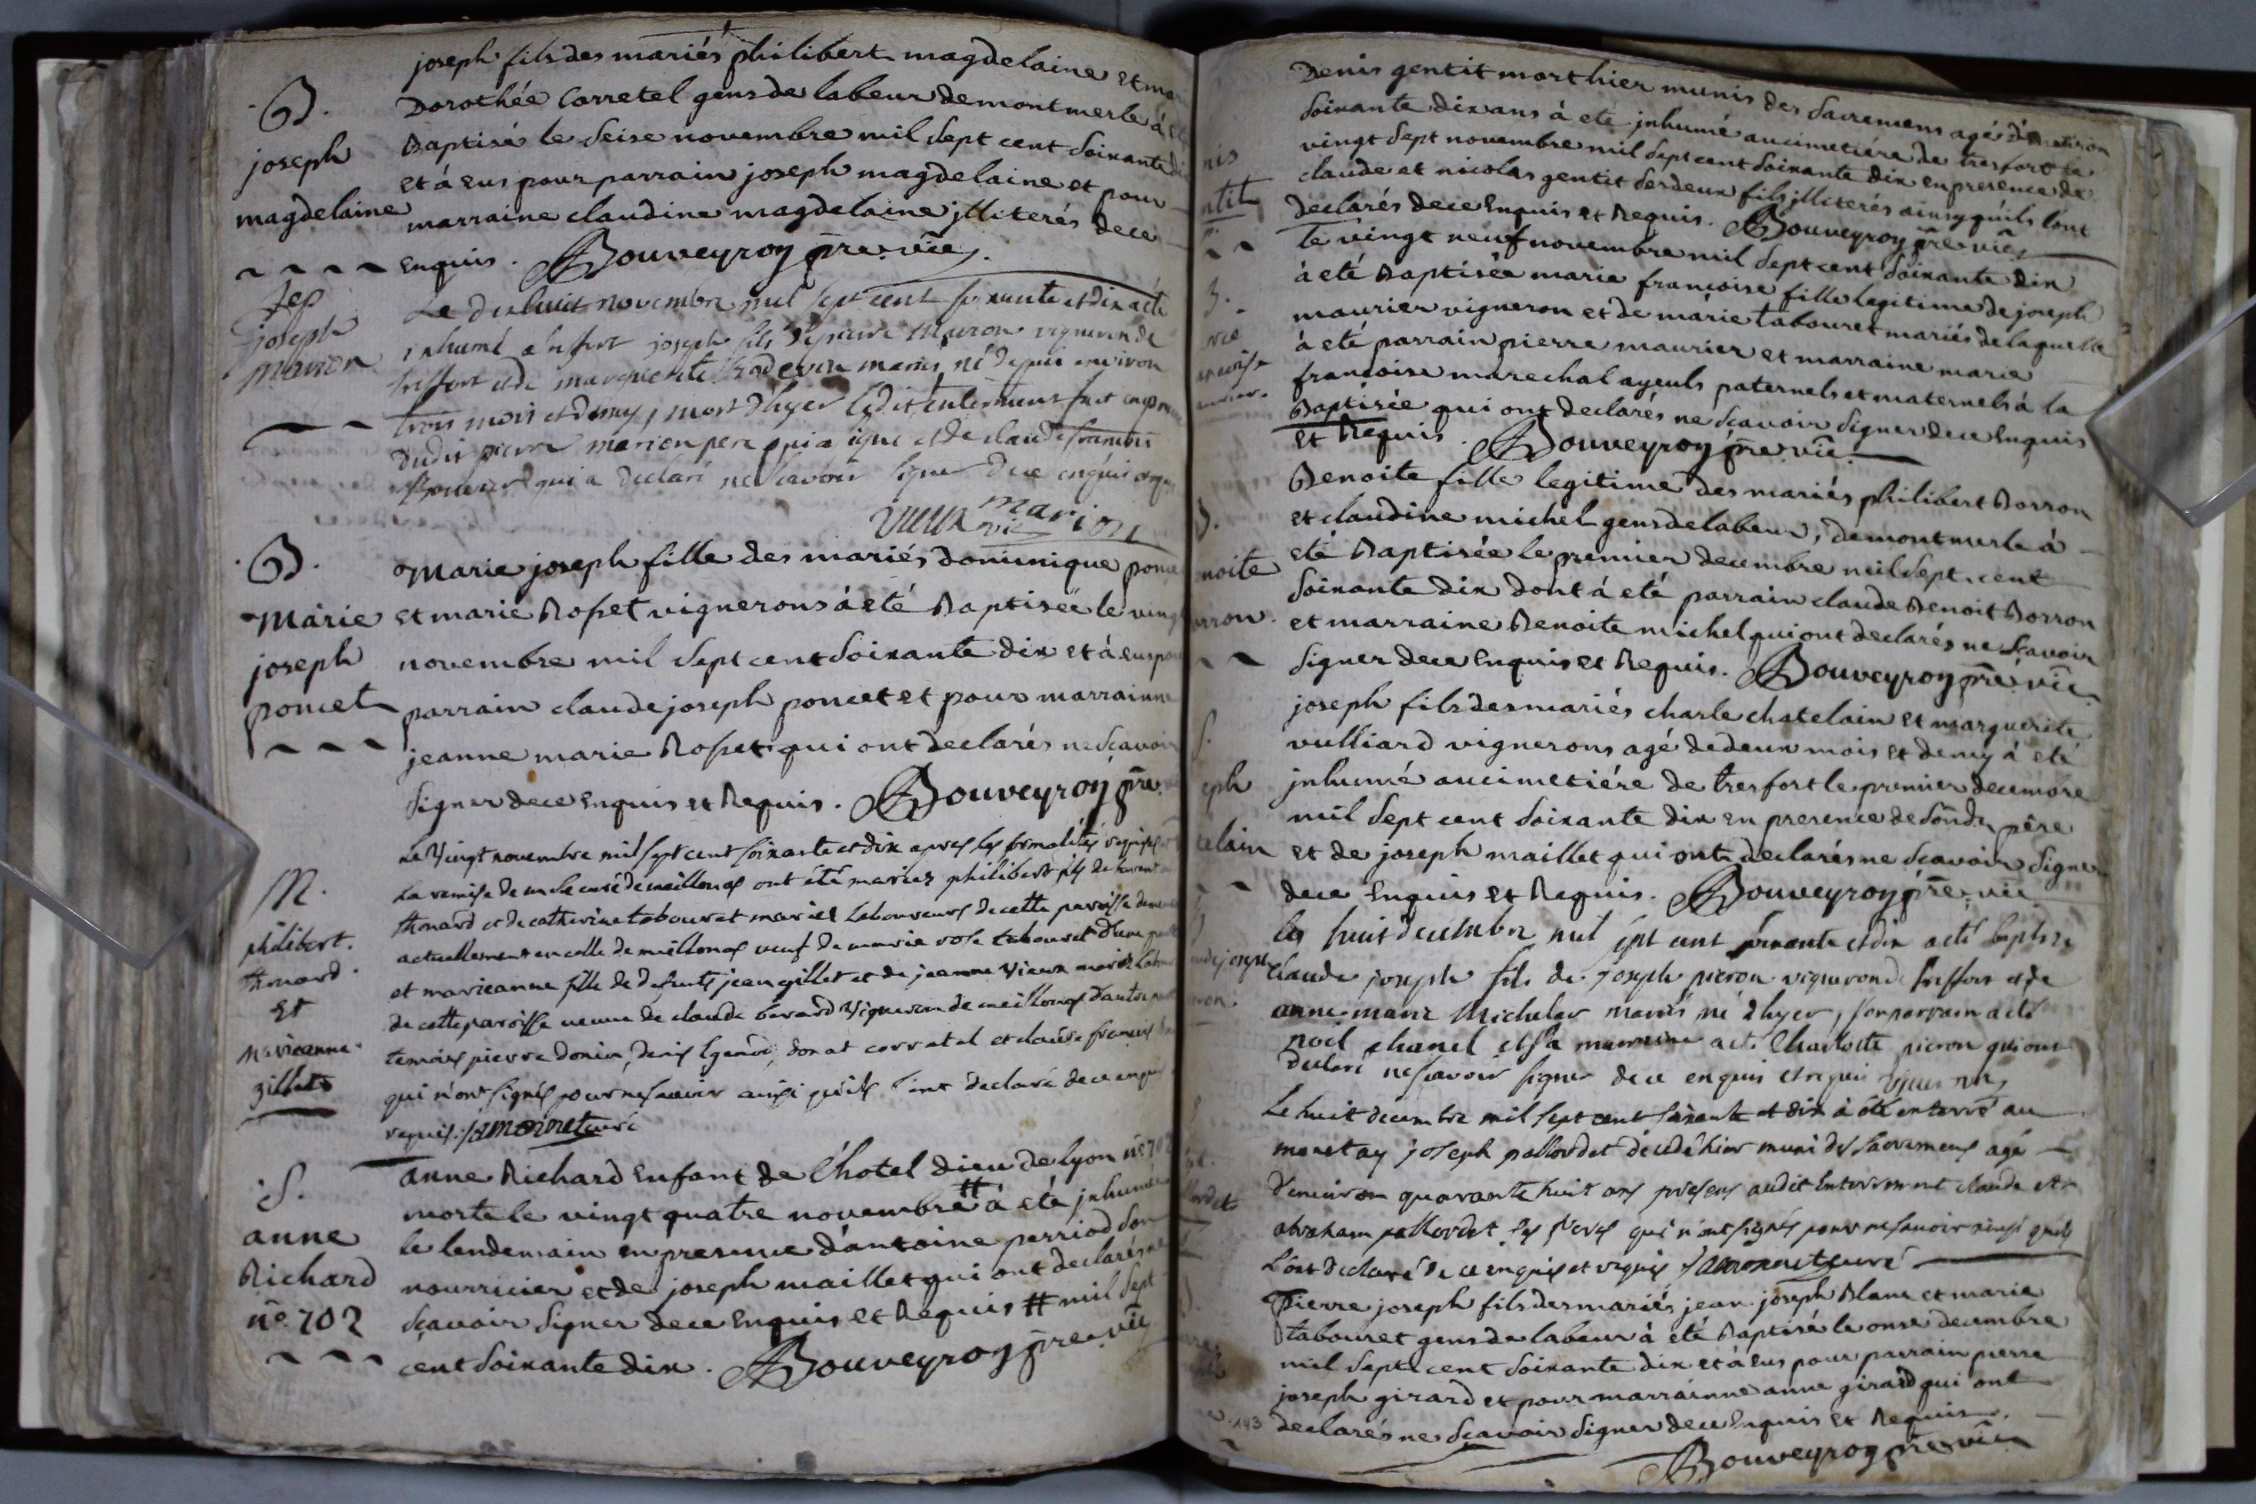 B.
joseph
magdelaine
joseph fils des mariés philibert magdelaine et
Dorothée Corretel gens de labeur de montmerle à
Baptisé le seise novembre mil sept cent soixante
et á eus pour parrain joseph magdelaine et pour
marraine claudine magdelaine jlliterés de ce
enquis. Bouveyroy pre. vic.
Sep
joseph
marion
Le dixhuit novembre mil sept cent soixante et dix a été
inhumé joseph fils de pierre marion vigneron de
treffort et de mariés né depuis environ
trois mois et demy, mort d'hyer ledit enterrement fait en
dudit pierre marion pere qui a signé et de claude françois
qui a declaré ne scavoir signer de ce enquis
vieux vic marion
B.
Marie
joseph
poncet
Marie joseph fille des mariés dominique
et marie Rosset vignerons á été Baptiseé le
novembre mil sept cent soixante dix et á eus
parrain claude joseph poncet et pour marrainne
jeanne marie Rosset qui ont declarés ne scavoir
signer de ce enquis et Requis. Bouveyroy pre.
M.
philibert
thenard
et
marieanne
gillet
Le Vingt novembre mil sept cent soixante et dix apres les formalités requises
La remise de mr le curé de meillonas ont été mariez philibert fils de
thenard et de catherine tabouret mariés laboureurs de cette paroisse
actuellement en celle de meillonas veuf de marie rose tabouret d'une part
et marieanne fille de defunts jean gillet et de jeanne vieux mariés
de cette paroisse veuve de claude berard vigneron de meillonas d'autre
temoins pierre donin, denis donat corretel et claude francois
qui n'ont signés pour ne scavoir ainsi qu'ils l'ont declaré de ce enquis
requis. curé
S.
anne
Richard
no. 702
anne Richard enfant de l'hotel dieu de lyon no 70
morte le vingt quatre novembre # á eté jnhumée
le lendemain en presence d'antoine perriod son
nourricier et de joseph maillet qui ont declarés ne
scavoir signer de ce enquis et Requis # mil sept
cent soixante dix. Bouveyroy pre. vic
Denis gentit mort hier munis des sacremens agé d'environ
soixante dix ans á eté jnhumé au cimetiére de tresfort le
vingt sept novembre mil sept cent soixante dix en presence de
claude et nicolas gentit ses deux fils jlliterés ainsy qu'ils l'ont
declarés de ce enquis et Requis. Bouveyroy pre vic
le vingt neuf novembre mil sept cent soixante dix
á eté Baptisée marie francoise fille legitime de joseph
maurier vigneron et de marie tabouret mariés de laquelle
á eté parrain pierre maurier et marraine marie
francoise marechal ayeuls paternels et maternels á la
Baptisée qui ont declarés ne scavoir signer de ce enquis
et Requis. Bouveyroy pre. vic.
Benoite fille legitime des mariés philibert Borron
et claudine michel gens de labeur, de montmerle á
eté Baptisée le premier decembre mil sept cent
soixante dix dont á eté parrain claude Benoit Borron
et marraine Benoite michel qui ont declarés ne scavoir
signer de ce enquis et Requis. Bouveyroy pre. vic.
joseph fils des mariés charle chatelain et marguerite
vulliard vignerons agé de deux mois et demy á eté
jnhumé au cimetiére de tresfort le premier decembre
mil sept cent soixante dix en presence de sondt pére
et de joseph maillet qui ont declarés ne scavoir signer
de ce enquis et Requis. Bouveyroy pre. vic
Le huit decembre mil sept cent soixante et dix a eté baptisé
claude joseph fils de joseph picron vigneron de treffort et de
anne marie Michelar mariés né d'hyer, son parrain a eté
noel chanel et sa marraine a eté Charlotte picron qui ont
declaré ne scavoir signer de ce enquis et requis vieux vic
Le huit decembre mil sept cent soixante et dix à été enterré au
monetay joseph pallordet décédé hier muni des sacremens agé
d'environ quarante huit ans présens audit enterrement claude et
abraham pallordet ses freres qui n'ont signés pour ne scavoir ainsi qu'ils
l'ont declaré de ce enquis et requis curé
Pierre joseph fils des mariés jean joseph Blanc et marie
tabouret gens de labeur á eté Baptisé le onse decembre
mil sept cent soixante dix et á eus pour parrain pierre
joseph girard et pour marrainne anne girard qui ont
declarés ne scavoir signer de ce enquis et Requis.
143
Bouveyroy pre vic